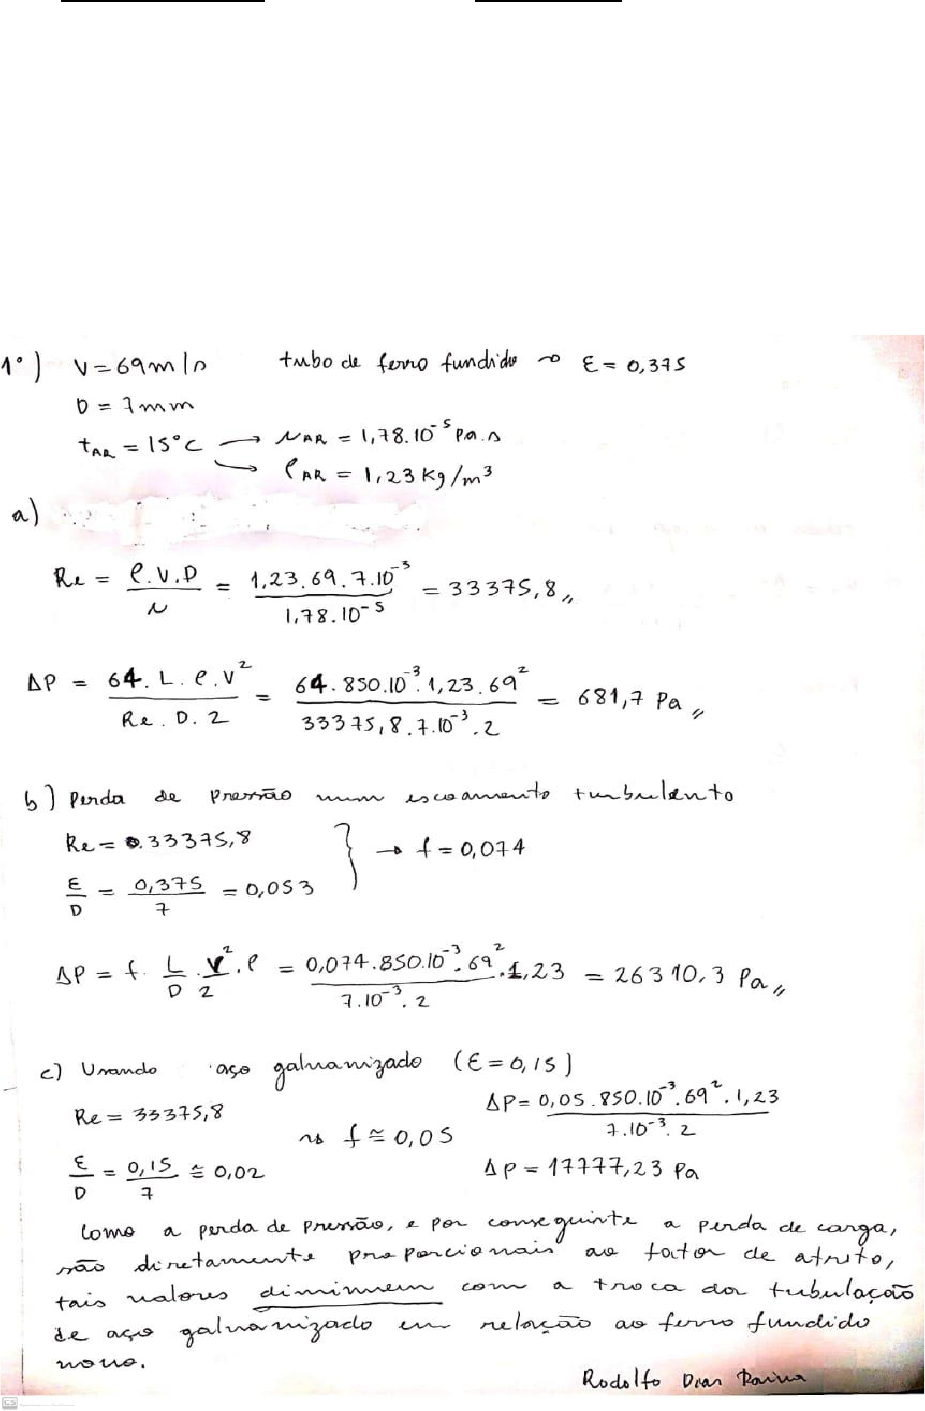 1º) V = 69 m/s tubo de ferro fundido → ε = 0,375
D = 7mm
tAR = 15°C → μAR = 1,78.10⁻⁵ Pa.s
→ ρAR = 1,23 Kg/m³
a)
Re = ρ.V.D / μ = 1,23.69.7.10⁻³ / 1,78.10⁻⁵ = 33375,8
ΔP = 64.L.ρ.V² / Re.D.2 = 64.850.10⁻³.1,23.69² / 33375,8.7.10⁻³.2 = 681,7 Pa
b) Perda de pressão num escoamento turbulento
Re = 33375,8
ε/D = 0,375/7 = 0,053 } → f = 0,074
ΔP = f. L/D . V²/2 . ρ = 0,074.850.10⁻³.69².1,23 / 7.10⁻³.2 = 26310,3 Pa
c) Usando aço galvanizado (ε = 0,15)
Re = 33375,8
ε/D = 0,15/7 ≅ 0,02
→ f ≅ 0,05
ΔP = 0,05.850.10⁻³.69².1,23 / 7.10⁻³.2
ΔP = 17777,23 Pa
Como a perda de pressão, e por conseguinte a perda de carga,
são diretamente proporcionais ao fator de atrito,
tais valores diminuem com a troca da tubulação
de aço galvanizado em relação ao ferro fundido
novo.
Rodolfo Dias
CS